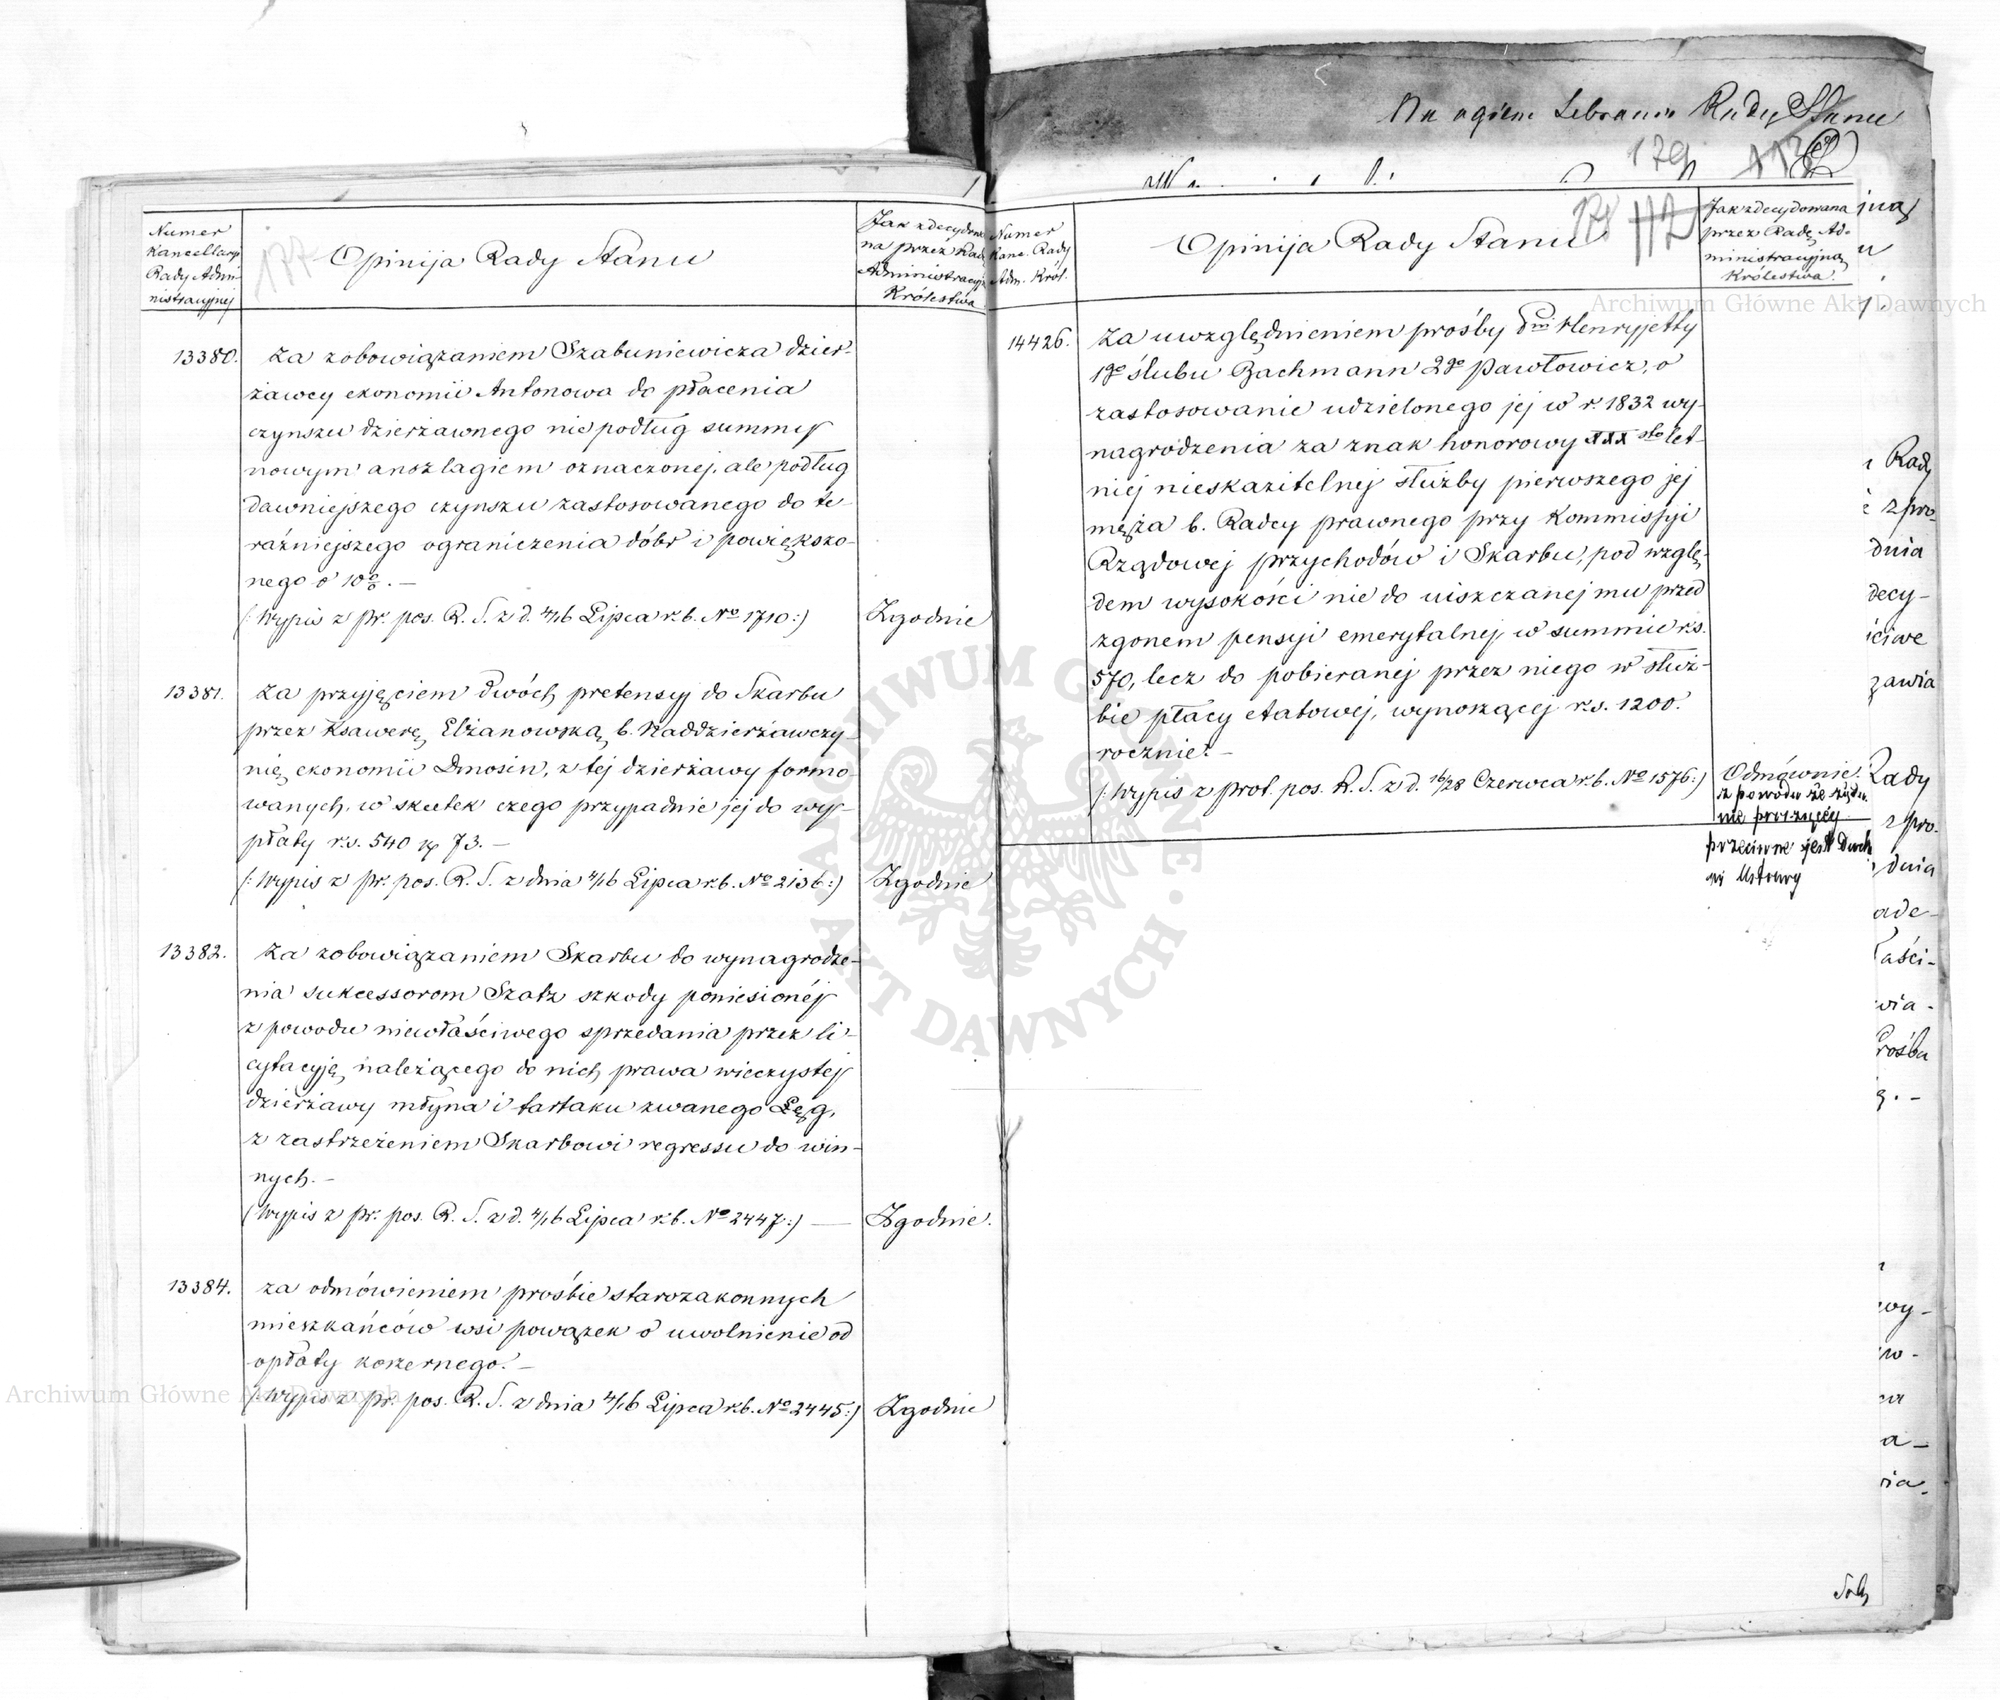 Numer
Kancellaryi
Rady Admi-
nistracyjnej
177
Opinija Rady Stanu
Jak zdecydowa-
na przez Radę
Administracyjną
Królestwa
13380.
Za zobowiązaniem Szabuniewicza dzier-
żawcy ekonomii Antonowa do płacenia
czynszu dzierżawnego nie podług summy
nowym anszlagiem oznaczonej, ale podług
dawniejszego czynszu zastosowanego do te-
raźniejszego ograniczenia dóbr i powiększo-
nego o 10%. —
(: Wypis z pr. pos. R. S. z d. 4/16 Lipca r.b. No 1710:)
Zgodnie
13381.
Za przyjęciem dwóch pretensyj do Skarbu
przez Ksawerę Elżanowską b. Naddzierżawczy-
nię ekonomii Dmosin, z tej dzierżawy formo-
wanych, w skutek czego przypadnie jej do wy-
płaty r.s. 540 k. 73. —
(: Wypis z pr. pos. R. S. z dnia 4/16 Lipca r.b. No 2136:)
Zgodnie
13382.
Za zobowiązaniem Skarbu do wynagrodze-
nia sukcessorom Szatz szkody poniesionéj
z powodu niewłaściwego sprzedania przez li-
cytacyję należącego do nich prawa wieczystej
dzierżawy młyna i tartaku zwanego Łęg,
z zastrzeżeniem Skarbowi regressu do win-
nych. —
(Wypis z pr. pos. R. S. z d. 4/16 Lipca r.b. No 2447:) —
Zgodnie.
13384.
za odmówieniem prośbie starozakonnych
mieszkańców wsi Powązek o uwolnienie od
opłaty koszernego. —
(: Wypis z pr. pos. R. S. z dnia 4/16 Lipca r.b. No 2445:)
Zgodnie
Zebranie Rady Stanu
179
178 112
Numer
Kanc. Rady
Adm. Król.
Opinija Rady Stanu
Jak zdecydowana
przez Radę Ad-
ministracyjną
Królestwa.
14426.
Za uwzględnieniem prośby Pni Henryjetty
1go ślubu Bachmann 2go Pawłowicz, o
zastosowanie udzielonego jej w r. 1832 wy-
nagrodzenia za znak honorowy XXX sto let-
niej nieskazitelnej służby pierwszego jej
męża b. Radcy prawnego przy Kommissyi
Rządowej Przychodów i Skarbu, pod wzglę-
dem wysokości nie do uiszczanej mu przed
zgonem pensyi emerytalnej w summie r.s.
570, lecz do pobieranej przez niego w służ-
bie płacy etatowej, wynoszącej r.s. 1200.
rocznie. —
(: Wypis z prot. pos. R. S. z d. 16/28 Czerwca r.b. No 1576:)
Odmównie.
z powodu że
nie proszącej
przeciwne jest Ducho-
wi Ustawy
Rady
z pro-
dnia
decy-
Rady
z pro-
dnia
Archiwum Główne Akt Dawnych
Archiwum Główne Akt Dawnych
ARCHIWUM GŁÓWNE AKT DAWNYCH